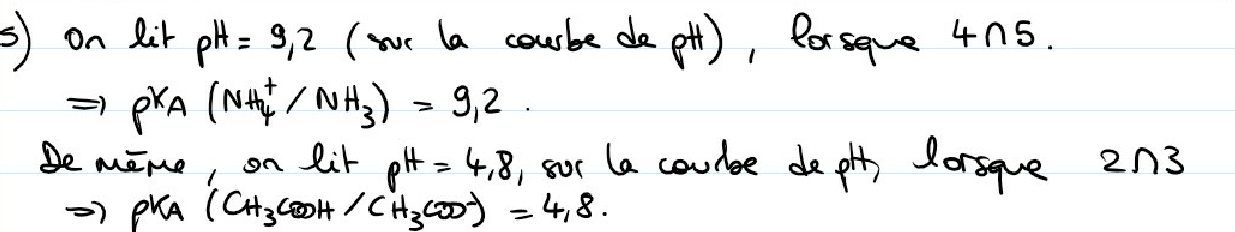 5) On lit pH = 9,2 (sur la courbe de pH), lorsque 4∩5.
=> pKA (NH₄⁺/NH₃) = 9,2.
De même, on lit pH = 4,8, sur la courbe de pH, lorsque 2∩3
=> pKA (CH₃COOH/CH₃COO⁻) = 4,8.